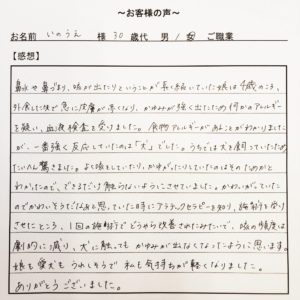 ～お客様の声～
お名前 いのうえ 様 30歳代 男/女 ご職業
【感想】
鼻水や鼻づまり、咳が出たりということが長く続いていた娘は4歳のころ、
外食した後で急に皮膚が赤くなり、かゆみが強く出たため何かのアレルギー
を疑い、血液検査を受りました。食物アレルギーがあることがわかりました
が、一番強く反応していたのは「犬」でした。うちでは犬を飼っていたため
たいへん驚きました。よく咳をしていたり、かゆがったりしていたのはそのためだと
わかったので、できるだけ触らないようにさせていました。かわいがっていた
のでかわいそうだなあと思っていた時にアラテックセラピーを知り、施術を受け
させたところ、1回の施術でどうやら改善されたみたいで、咳の頻度は
劇的に減り、犬に触ってもかゆみが出なくなったように思います。
娘も愛犬もうれしそうで私も気持ちが軽くなりました。
ありがとうございました。